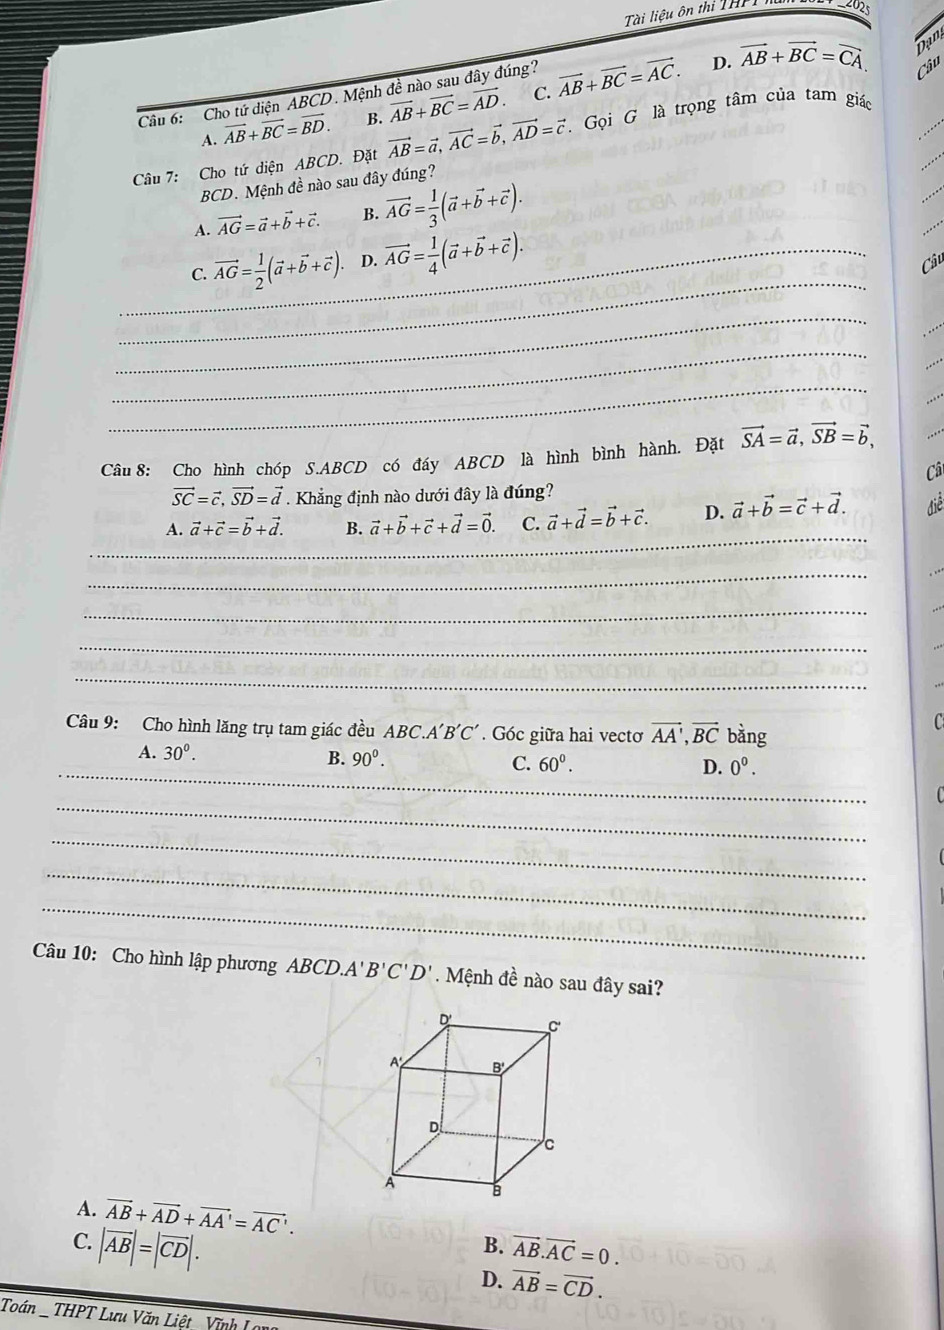 Tài liệu ôn thi 2025
Câu 6: Cho tứ diện ABCD. Mệnh đề nào sau đây đúng?
A. $\overrightarrow{AB}+\overrightarrow{BC}=\overrightarrow{BD}$. B. $\overrightarrow{AB}+\overrightarrow{BC}=\overrightarrow{AD}$. C. $\overrightarrow{AB}+\overrightarrow{BC}=\overrightarrow{AC}$. D. $\overrightarrow{AB}+\overrightarrow{BC}=\overrightarrow{CA}$.
Câu 7: Cho tứ diện ABCD. Đặt $\overrightarrow{AB}=\vec{a}$, $\overrightarrow{AC}=\vec{b}$, $\overrightarrow{AD}=\vec{c}$. Gọi G là trọng tâm của tam giác
BCD. Mệnh đề nào sau đây đúng?
A. $\overrightarrow{AG}=\vec{a}+\vec{b}+\vec{c}$. B. $\overrightarrow{AG}=\frac{1}{3}(\vec{a}+\vec{b}+\vec{c})$.
C. $\overrightarrow{AG}=\frac{1}{2}(\vec{a}+\vec{b}+\vec{c})$. D. $\overrightarrow{AG}=\frac{1}{4}(\vec{a}+\vec{b}+\vec{c})$.
Câu 8: Cho hình chóp S.ABCD có đáy ABCD là hình bình hành. Đặt $\overrightarrow{SA}=\vec{a}$, $\overrightarrow{SB}=\vec{b}$,
$\overrightarrow{SC}=\vec{c}$, $\overrightarrow{SD}=\vec{d}$. Khẳng định nào dưới đây là đúng?
A. $\vec{a}+\vec{c}=\vec{b}+\vec{d}$. B. $\vec{a}+\vec{b}+\vec{c}+\vec{d}=\vec{0}$. C. $\vec{a}+\vec{d}=\vec{b}+\vec{c}$. D. $\vec{a}+\vec{b}=\vec{c}+\vec{d}$.
Câu 9: Cho hình lăng trụ tam giác đều ABC.A'B'C'. Góc giữa hai vectơ $\overrightarrow{AA'}$, $\overrightarrow{BC}$ bằng
A. 30⁰. B. 90⁰. C. 60⁰. D. 0⁰.
Câu 10: Cho hình lập phương ABCD.A'B'C'D'. Mệnh đề nào sau đây sai?
D'
C'
A'
B'
D
C
A
B
A. $\overrightarrow{AB}+\overrightarrow{AD}+\overrightarrow{AA'}=\overrightarrow{AC'}$.
B. $\overrightarrow{AB}.\overrightarrow{AC}=0$.
C. $|\overrightarrow{AB}|=|\overrightarrow{CD}|$.
D. $\overrightarrow{AB}=\overrightarrow{CD}$.
Toán _ THPT Lưu Văn Liệt _ Vĩnh
Dạng
Câu
Câu